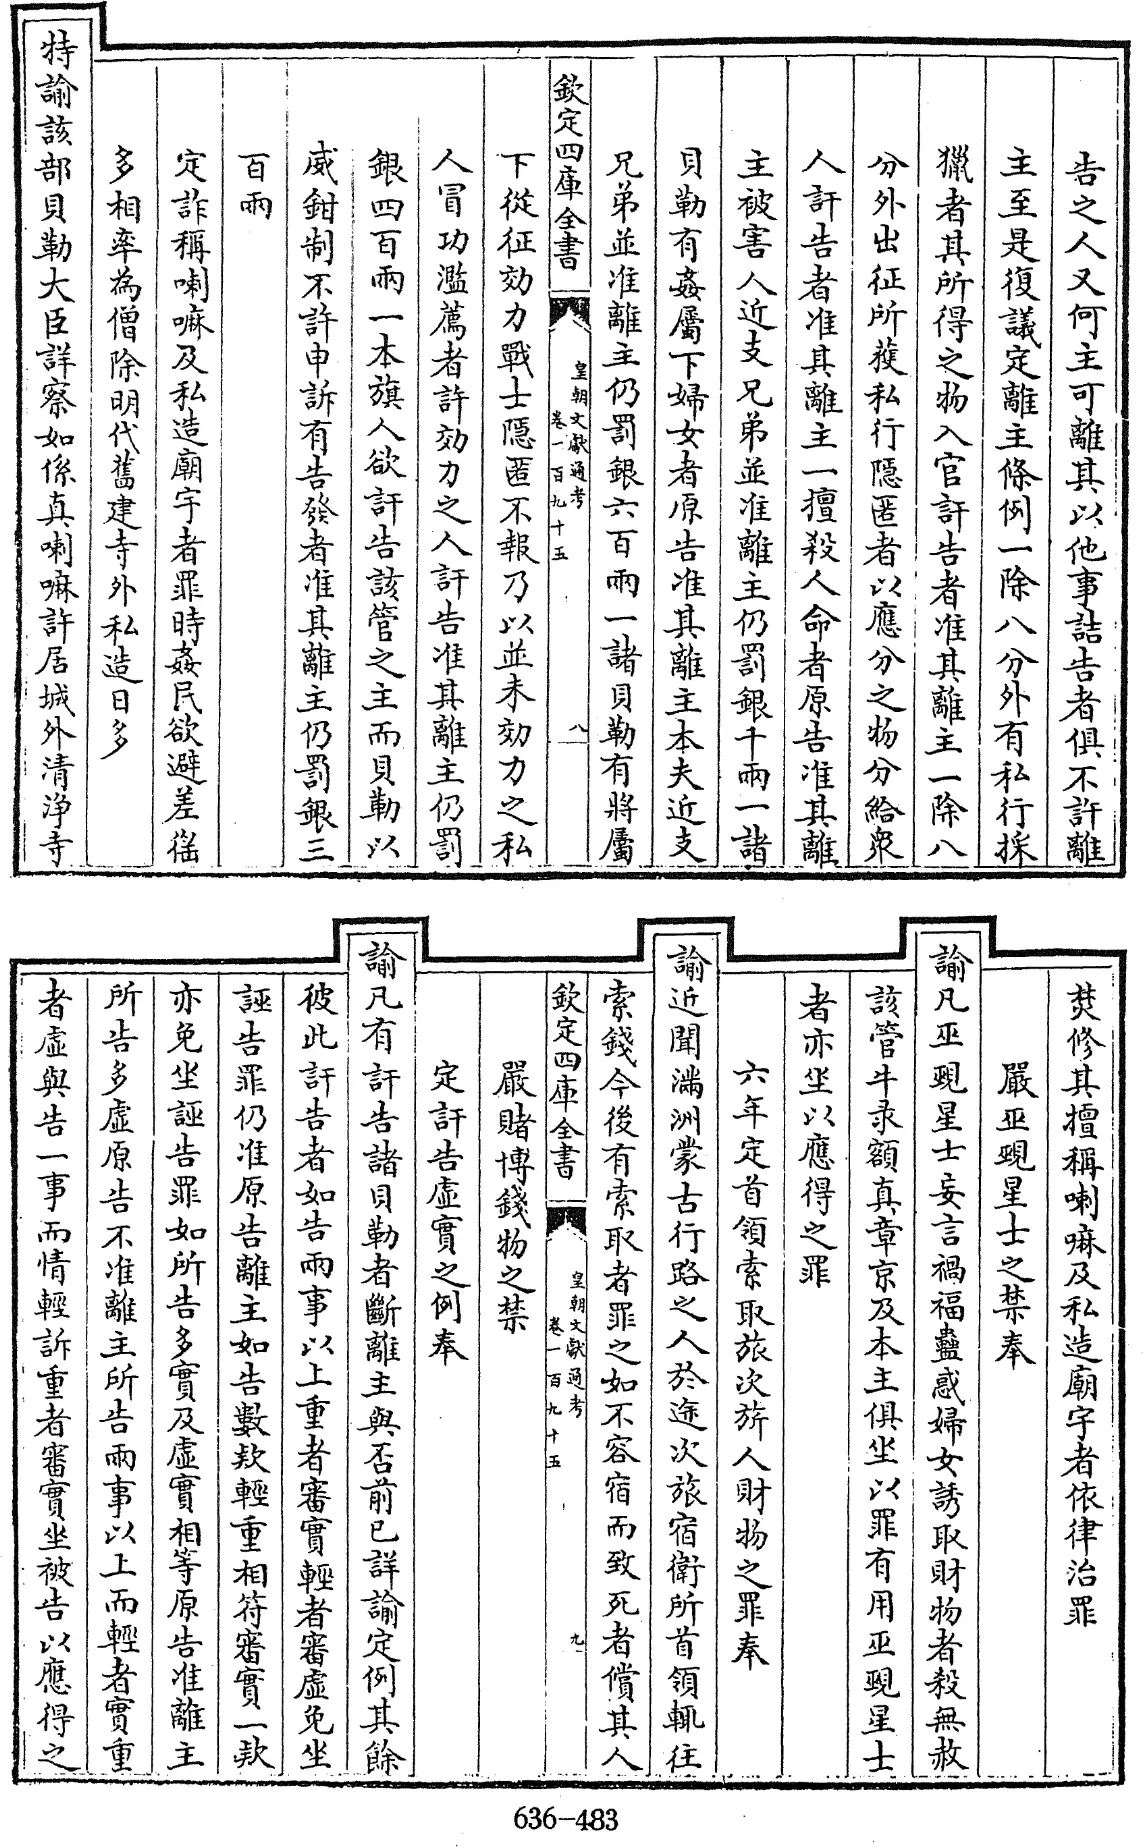 告之人又何主可離其以他事詰告者俱不許離
主至是復議定離主條例一除八分外有私行採
獵者其所得之物入官訐告者准其離主一除八
分外出征所獲私行隱匿者以應分之物分給衆
人訐告者准其離主一擅殺人命者原告准其離
主被害人近支兄弟並准離主仍罰銀千兩一諸
貝勒有姦屬下婦女者原告准其離主本夫近支
兄弟並准離主仍罰銀六百兩一諸貝勒有將屬
欽定四庫全書
皇朝文獻通考
卷一百九十五
八
下從征効力戰士隱匿不報乃以並未効力之私
人冒功濫薦者許効力之人訐告准其離主仍罰
銀四百兩一本旗人欲訐告該管之主而貝勒以
威鉗制不許申訴有告發者准其離主仍罰銀三
百兩
定詐稱喇嘛及私造廟宇者罪時姦民欲避差徭
多相率為僧除明代舊建寺外私造日多
特諭該部貝勒大臣詳察如係真喇嘛許居城外清浄寺
焚修其擅稱喇嘛及私造廟宇者依律治罪
嚴巫覡星士之禁奉
諭凡巫覡星士妄言禍福蠱惑婦女誘取財物者殺無赦
該管牛彔額真章京及本主俱坐以罪有用巫覡星士
者亦坐以應得之罪
六年定首領索取旅次旂人財物之罪奉
諭近聞滿洲蒙古行路之人於途次旅宿衛所首領輒往
索錢今後有索取者罪之如不容宿而致死者償其人
欽定四庫全書
皇朝文獻通考
卷一百九十五
九
嚴賭博錢物之禁
定訐告虛實之例奉
諭凡有訐告諸貝勒者斷離主與否前已詳諭定例其餘
彼此訐告者如告兩事以上重者審實輕者審虛免坐
誣告罪仍准原告離主如告數款輕重相符審實一款
亦免坐誣告罪如所告多實及虛實相等原告准離主
所告多虛原告不准離主所告兩事以上而輕者實重
者虛與告一事而情輕訴重者審實坐被告以應得之
636-483